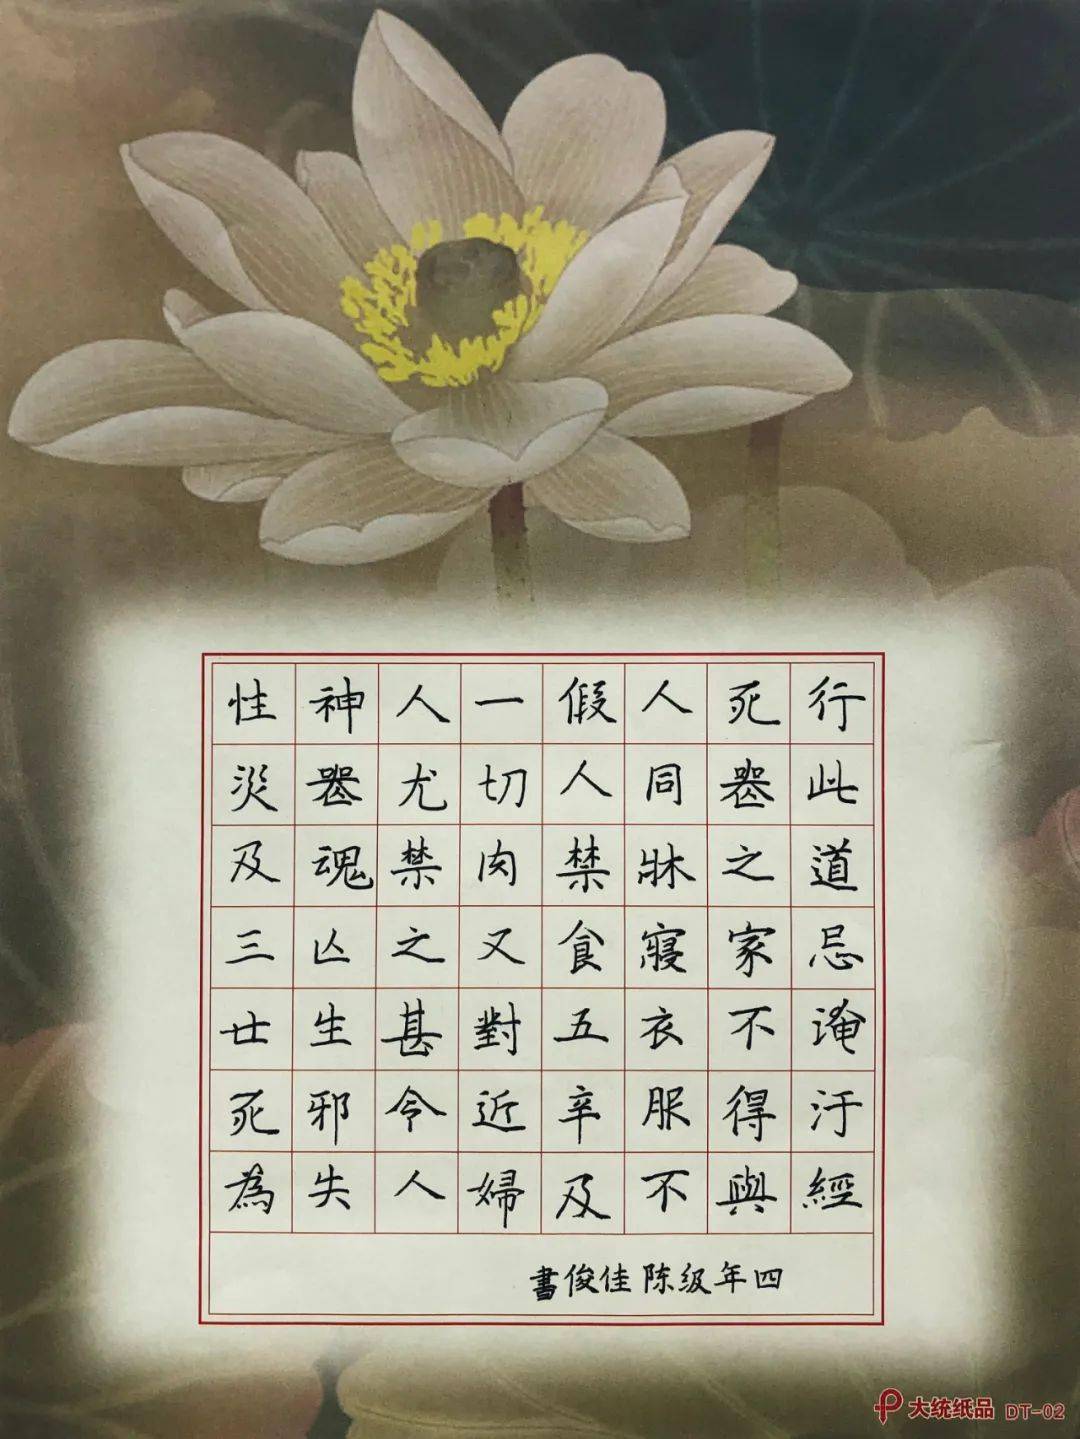 行此道忌淹汙經
死喪之家不得與
人同牀寢衣服不
假人禁食五辛及
一切肉又對近婦
人尤禁之甚令人
神喪魂亡生邪失
性災及三世死為
四年级陈佳俊書
大统纸品 DT-02